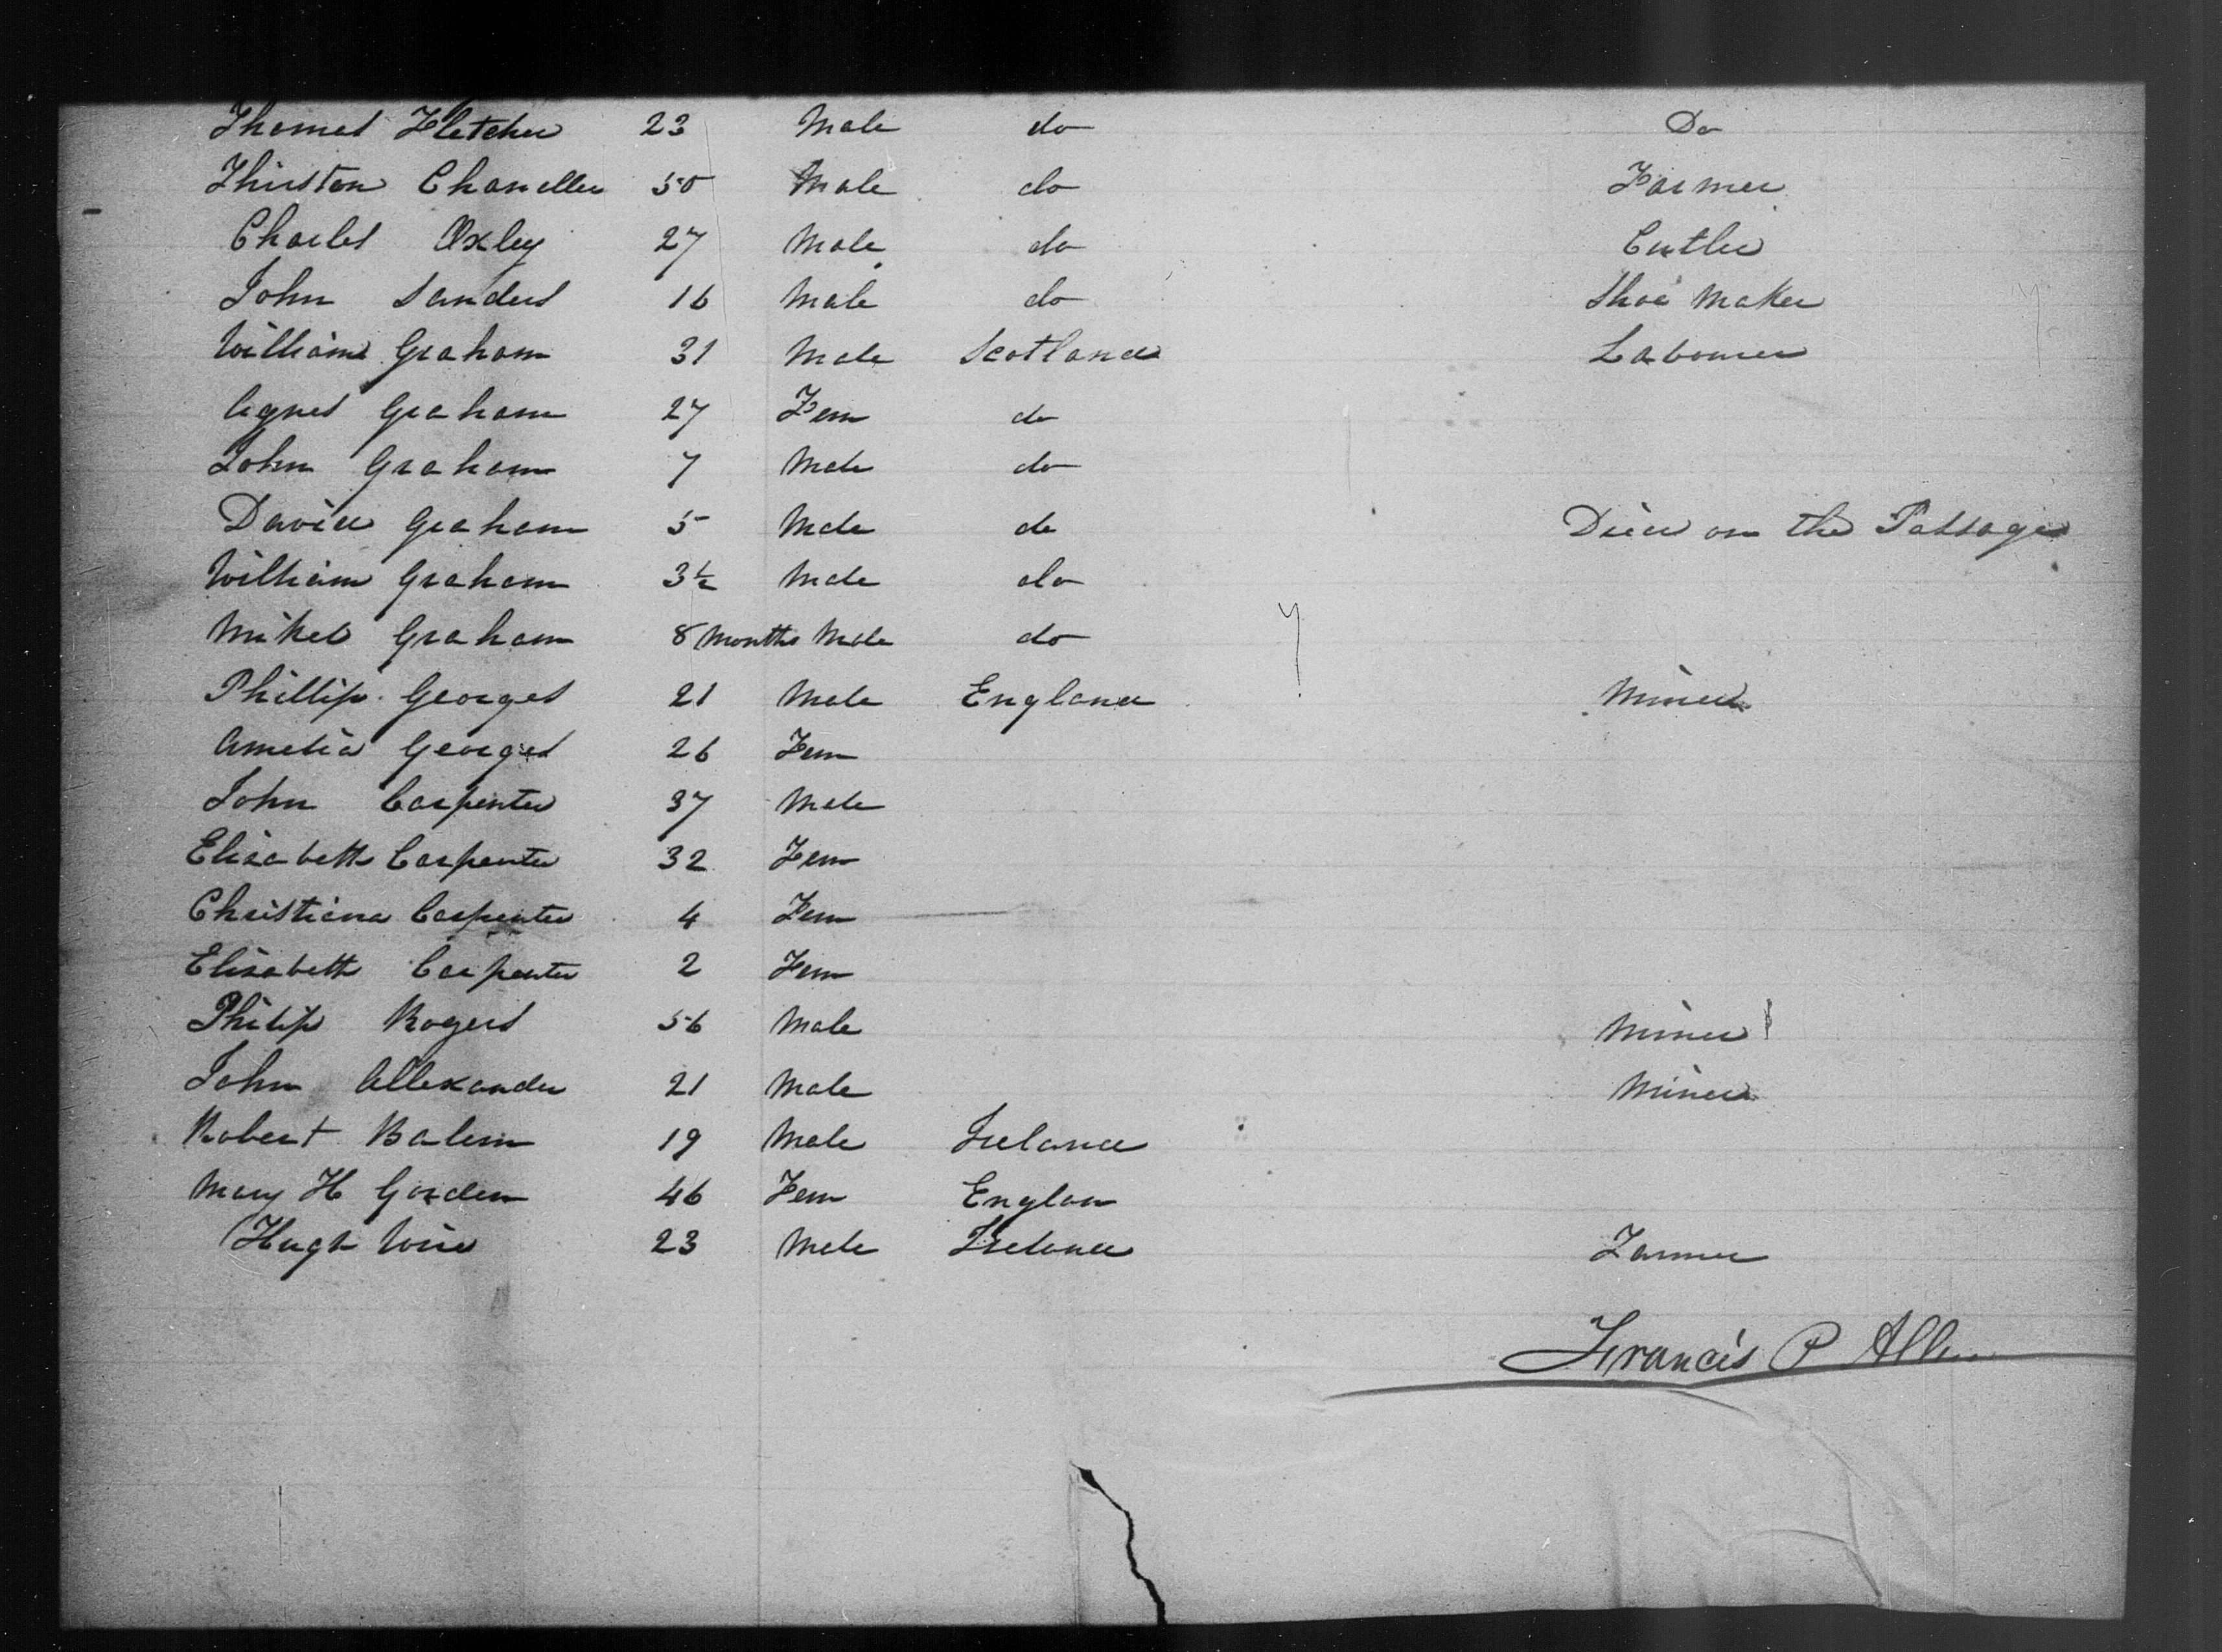 Thomas Fletcher 23 Male do Do
Thurston Chandler 50 Male do Farmer
Charles Oxley 27 Male do Cutler
John Sanders 16 Male do Shoe Maker
William Graham 31 Male Scotland Labourer
Agnes Graham 27 Fem do
John Graham 7 Male do
David Graham 5 Male do Died on the Passage
William Graham 3½ Male do
Mikel Graham 8 Months Male do
Phillip Georges 21 Male England Miner
Amelia Georges 26 Fem
John Carpenter 37 Male
Elisabeth Carpenter 32 Fem
Christiana Carpenter 4 Fem
Elisabeth Carpenter 2 Fem
Philip Rogers 56 Male Miner
John Allexander 21 Male Miner
Robert 19 Male Ireland
Mary H Gorden 46 Fem Englan
Hugh 23 Male Ireland Farmer
Francis P Allen